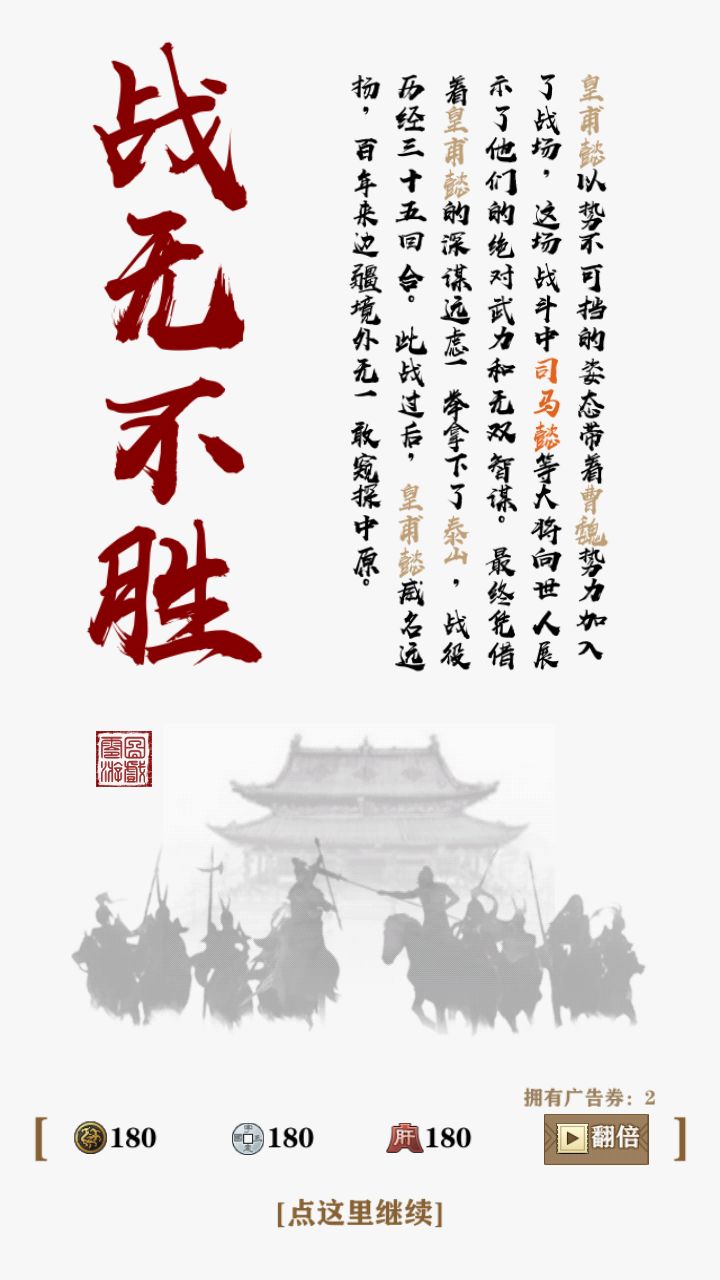 战无不胜
皇甫懿以势不可挡的姿态带着曹魏势力加入
了战场，这场战斗中司马懿等大将向世人展
示了他们的绝对武力和无双智谋。最终凭借
着皇甫懿的深谋远虑一举拿下了泰山，战役
历经三十五回合。此战过后，皇甫懿威名远
扬，百年来边疆境外无一敢窥探中原。
拥有广告券：2
[ 180 180 肝 180 翻倍 ]
[点这里继续]